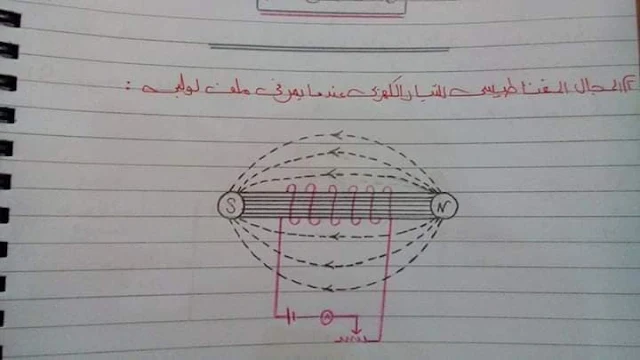 ٢) المجال المغناطيسي للتيار الكهربي عندما يمر في ملف لولبي :
S N
A